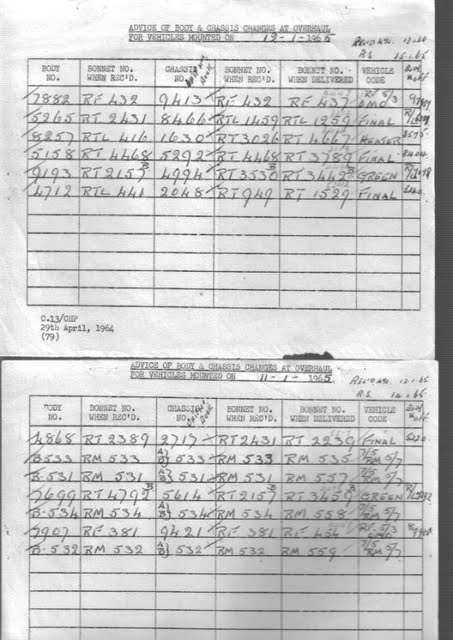 ADVICE OF BODY & CHASSIS CHANGES AT OVERHAUL
FOR VEHICLES MOUNTED ON 12-1-1965
R.S. 15.1.65
BODY NO. BONNET NO. WHEN REC'D. CHASSIS NO. BONNET NO. WHEN REC'D. BONNET NO. WHEN DELIVERED VEHICLE CODE
7882 RF 432 9413 RF 432 RF 437 RF 5/3
5265 RT 2431 8466 RTL 1459 RTL 1259 FINAL
8257 RTL 416 1630 RT 3026 RT 4667 HEATER
5158 RT 4468 5292 RT 4468 RT 3789 FINAL
9193 RT 2157 B 4994 RT 3530 RT 3442 B GREEN
4712 RTL 441 2048 RT 949 RT 1529 FINAL
C.13/CHP
29th April, 1964
(79)
ADVICE OF BODY & CHASSIS CHANGES AT OVERHAUL
FOR VEHICLES MOUNTED ON 11-1-1965
R.S. 14.1.65
BODY NO. BONNET NO. WHEN REC'D. CHASSIS NO. BONNET NO. WHEN REC'D. BONNET NO. WHEN DELIVERED VEHICLE CODE
4868 RT 2389 2717 RT 2431 RT 2239 FINAL
B-533 RM 533 A} B} 533 RM 533 RM 535 7/5 RM 5/7
B-531 RM 531 A} B} 531 RM 531 RM 557 7/5 RM 5/7
7699 RT 4792 B 5614 RT 2157 RT 3459 B GREEN
B-534 RM 534 A} B} 534 RM 534 RM 558 7/5 RM 5/7
7907 RF 381 9421 RF 381 RF 454 RF 5/3
B-532 RM 532 A} B} 532 RM 532 RM 559 7/5 RM 5/7